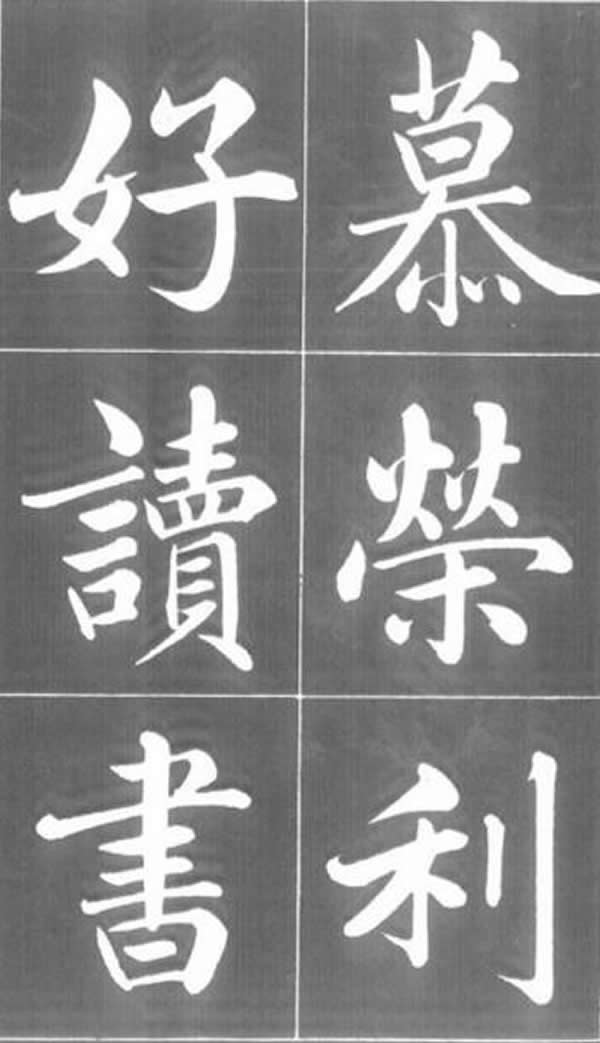 慕榮利
好讀書